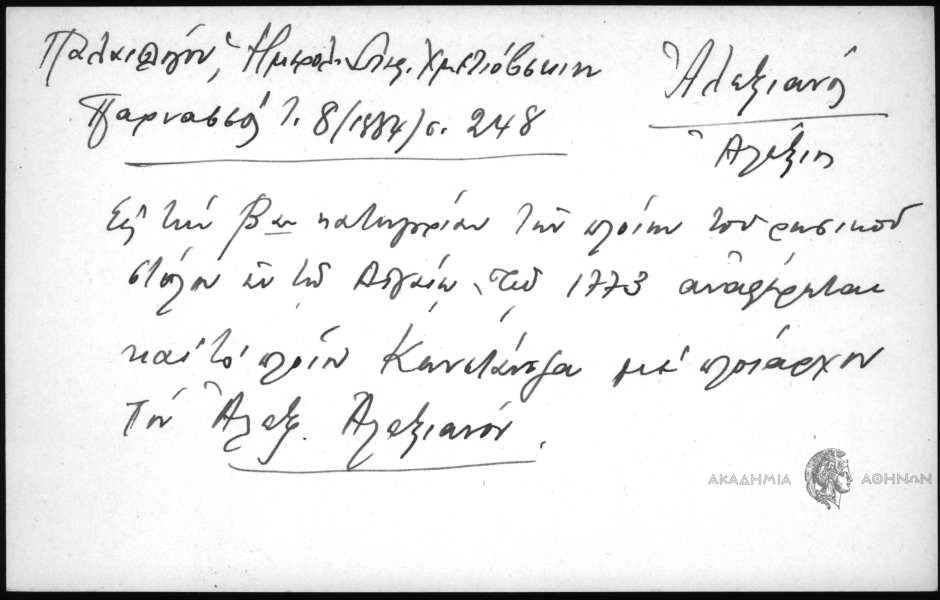 Παλαιολόγου, Ἡμερολ. Στεφ. Χμετιόβσκη
Παρνασσός τ. 8 (1884) σ. 248
Ἀλεξιανός
Ἀλέξιος
Εἰς τὴν βαν κατηγορίαν τῶν πλοίων τοῦ ρωσικοῦ
στόλου ἐν τῷ Αἰγαίῳ τοῦ 1773 ἀναφέρεται
καὶ τὸ πλοῖον Κωνστάντζα μὲ πλοίαρχον
τὸν Ἀλεξ. Ἀλεξιανόν.
ΑΚΑΔΗΜΙΑ ΑΘΗΝΩΝ